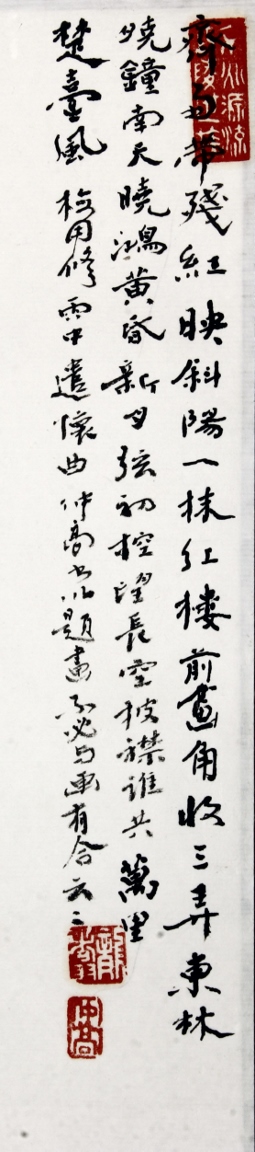 齊雨帶殘紅映斜陽一抹红樓前畫角收三弄東林
曉鐘南天曉鴻黃昏新月弦初控望長空披襟誰共萬里
楚臺風 楊用修雲中遣懷曲仲高書以題畫不必与画有合云々